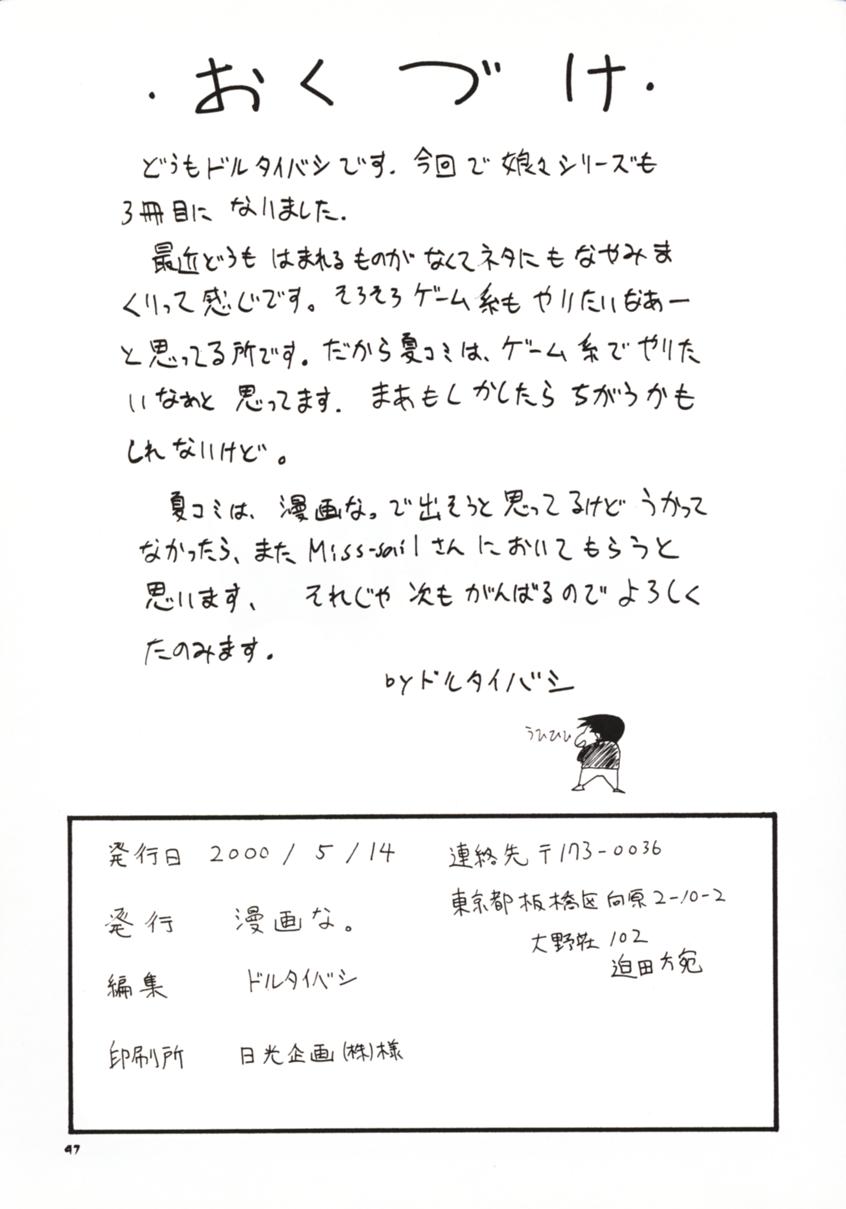 ・おくづけ・
どうもドルタイバシです．今回で娘々シリーズも
3冊目になりました．
最近どうもはまれるものがなくてネタにもなやみま
くりって感じです。そろそろゲーム系もやりたいなあー
と思ってる所です。だから夏コミは、ゲーム系でやりた
いなぁと思ってます．まあもしかしたらちがうかも
しれないけど。
夏コミは、漫画な。で出そうと思ってるけどうかって
なかったら、またMiss-sailさんにおいてもらうと
思います、それじゃ次もがんばるのでよろしく
たのみます。
byドルタイバシ
うひひひ
発行日 2000/5/14
発行 漫画な。
編集 ドルタイバシ
印刷所 日光企画(株)様
連絡先 〒173-0036
東京都板橋区向原2-10-2
大野荘102
迫田方宛
47